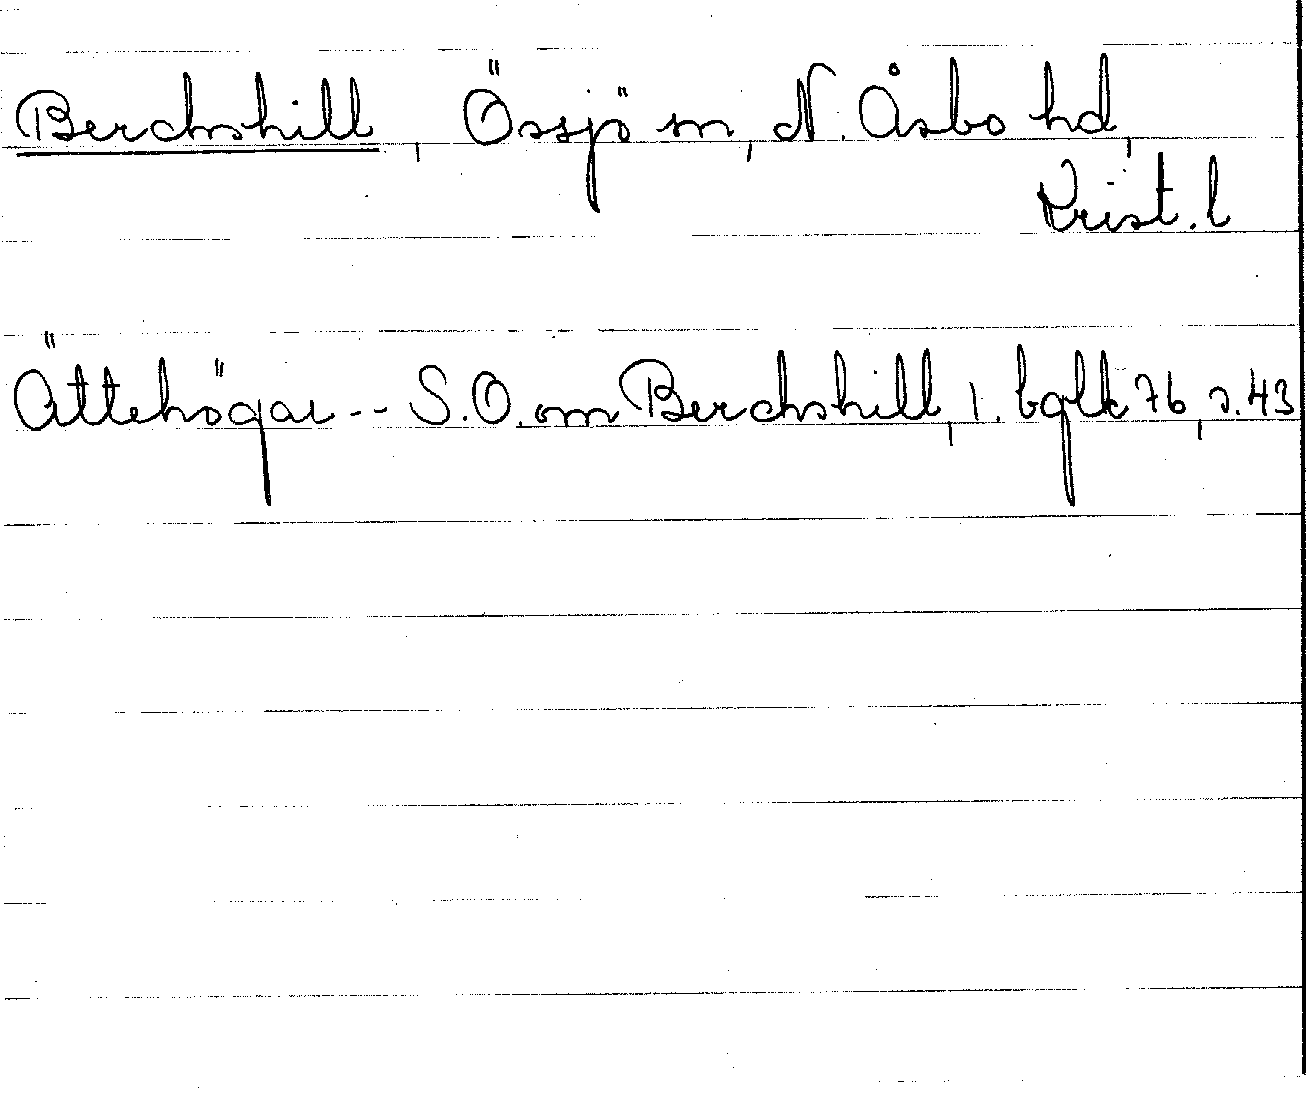 Berchshill, Össjö sn, N. Åsbo hd,
Krist. l
Ättehögar -- S.O. om Berchshill, 1. bglk 76, s. 43